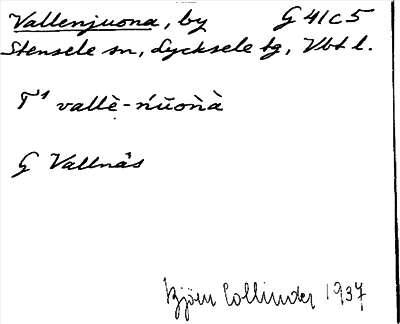 Vallenjuona, by G 41c5
Stensele sn, Lycksele tg, Vbt l.
T¹ vallè-ńŭoǹà
G Vallnäs
Björn Collinder 1937